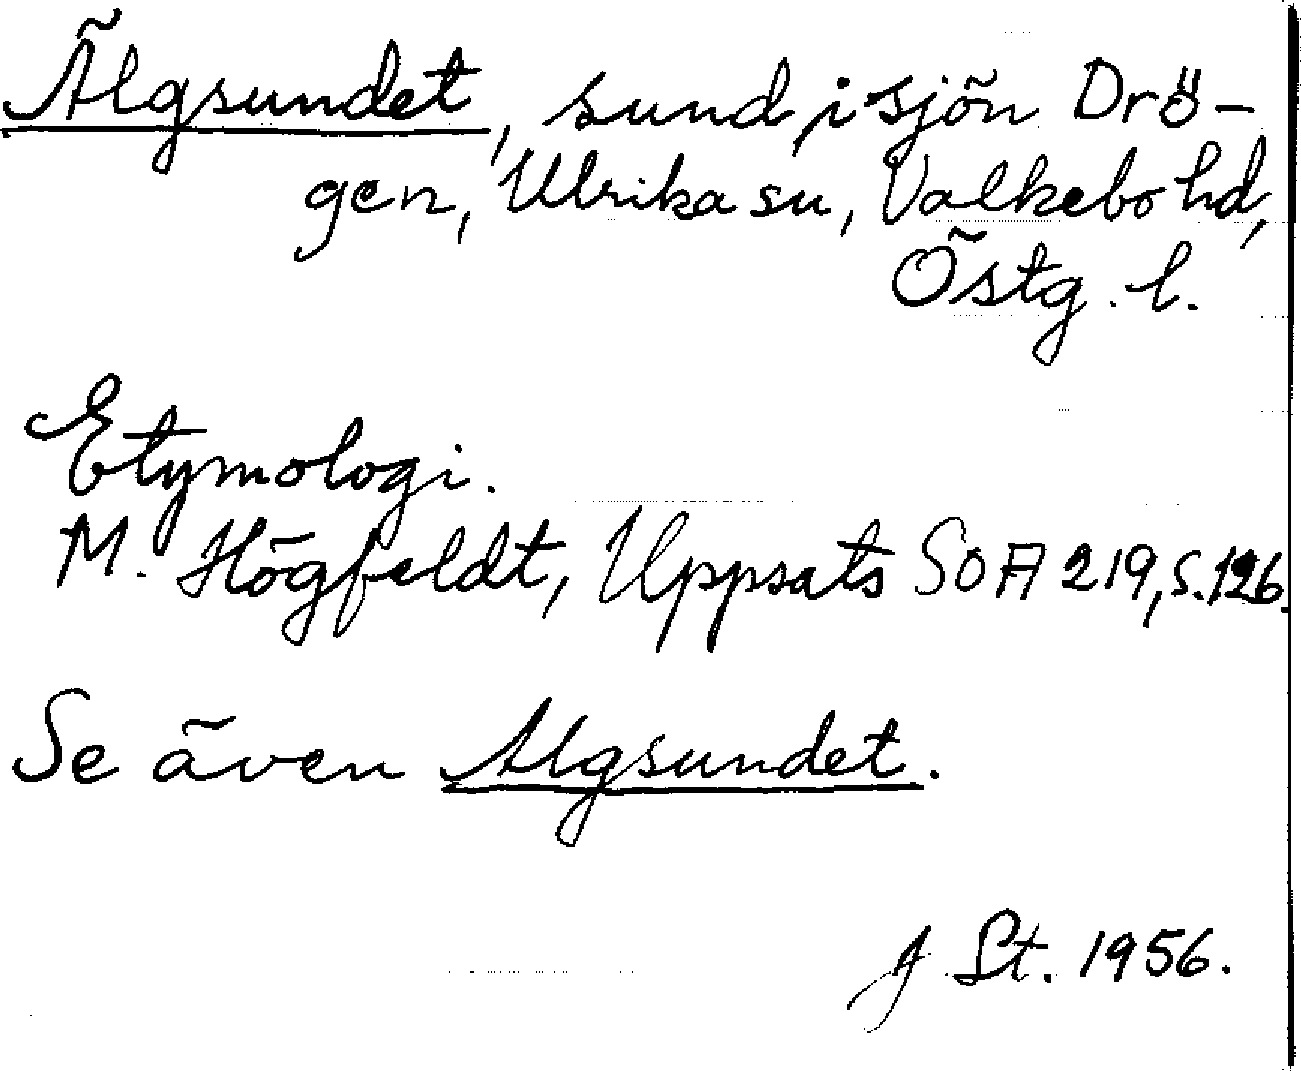 Älgsundet, sund i sjön Drö-
gen, Ulrika su, Valkebo hd,
Östg. l.
Etymologi.
M. Högfeldt, Uppsats SOA 219, s. 126.
Se även Algsundet.
J St. 1956.